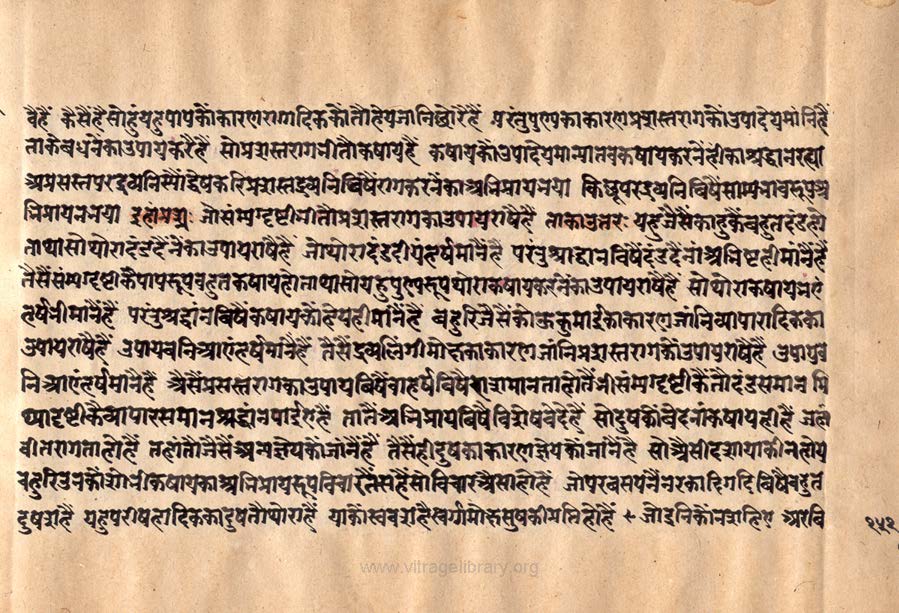 वैहैं कैसैंहै सो हूं यहु पापकौं कारण रागादिककौं तौ हेय जानि छोरै हैं परंतु पुण्यका कारण प्रशस्तरागकौं उपादेय मांनै है
ताकै बधनेका उपाय करै है सो प्रशस्तराग भी तौ कषाय है कषायकौं उपादेय मान्या तब कषाय करनेंहीका श्रद्धान रह्या
अप्रसस्त परद्रव्यनिस्यौं द्वेष करि प्रशस्त द्रव्यनि विषैं राग करनेंका अभिप्राय भया किछू परद्रव्यनि विषैं साम्यभावरूप अ
भिप्राय न भया इहां प्रश्न जो संम्यग्दृष्टी भी तौ प्रशस्तरागका उपाय राषै है ताका उत्तरः यहु जैसैं काहूकै बहुत दंड होता
ता था सो थोरा दंड देनेंका उपाय राषै है थोरा दंड दीएं हर्ष मांनै है परंतु श्रद्धान विषैं दंड देनां अनिष्ट ही मांनै है
तैसैं संम्यग्दृष्टीकै पापरूप बहुत कषाय होता था सो यहु पुण्यरूप थोरा कषाय करनेंका उपाय राषै है थोरा कषाय भए
हर्ष भी मांनै है परंतु श्रद्धान विषैं कषायकौं हेय ही मांनै है बहुरि जैसैं कोऊ कुमाईका कारण जांनि व्यापारादिकका
उपाय राषै है उपाय बनि आएं हर्ष मांनै है तैसैं द्रव्यलिंगी मोक्षका कारण जांनि प्रशस्तरागकौं उपाय राषै है उपाय ब
नि आएं हर्ष मांनै है असैं प्रसस्तरागका उपाय विषैं वा हर्ष विषैं समानता होतैं भी संम्यग्दृष्टीकै तौ दंड समान मि
थ्यादृष्टीकै व्यापार समान श्रद्धान पाईए है तातैं अभिप्राय विषैं विशेष
वीतरागता हो है तहां तौ जैसैं अन्य ज्ञेयकौं जांनै है तैसैं ही दुषका कारण ज्ञेयकौं जांनै है सो असी दशा याकी न होय
बहुरि उनकौं भी कषायका अभिप्रायरूप विचार सो विचार असा हो है जो परवसपनैं नरकादि गति विषैं बहुत
दुष यहु परीषहादिकका दुष तौ थोरा है याकौं स्वर्ग मोक्ष सुषकी प्राप्ति हो है जो इनिकौं न सहिए अर वि
२५२
www.vitragelibrary.org